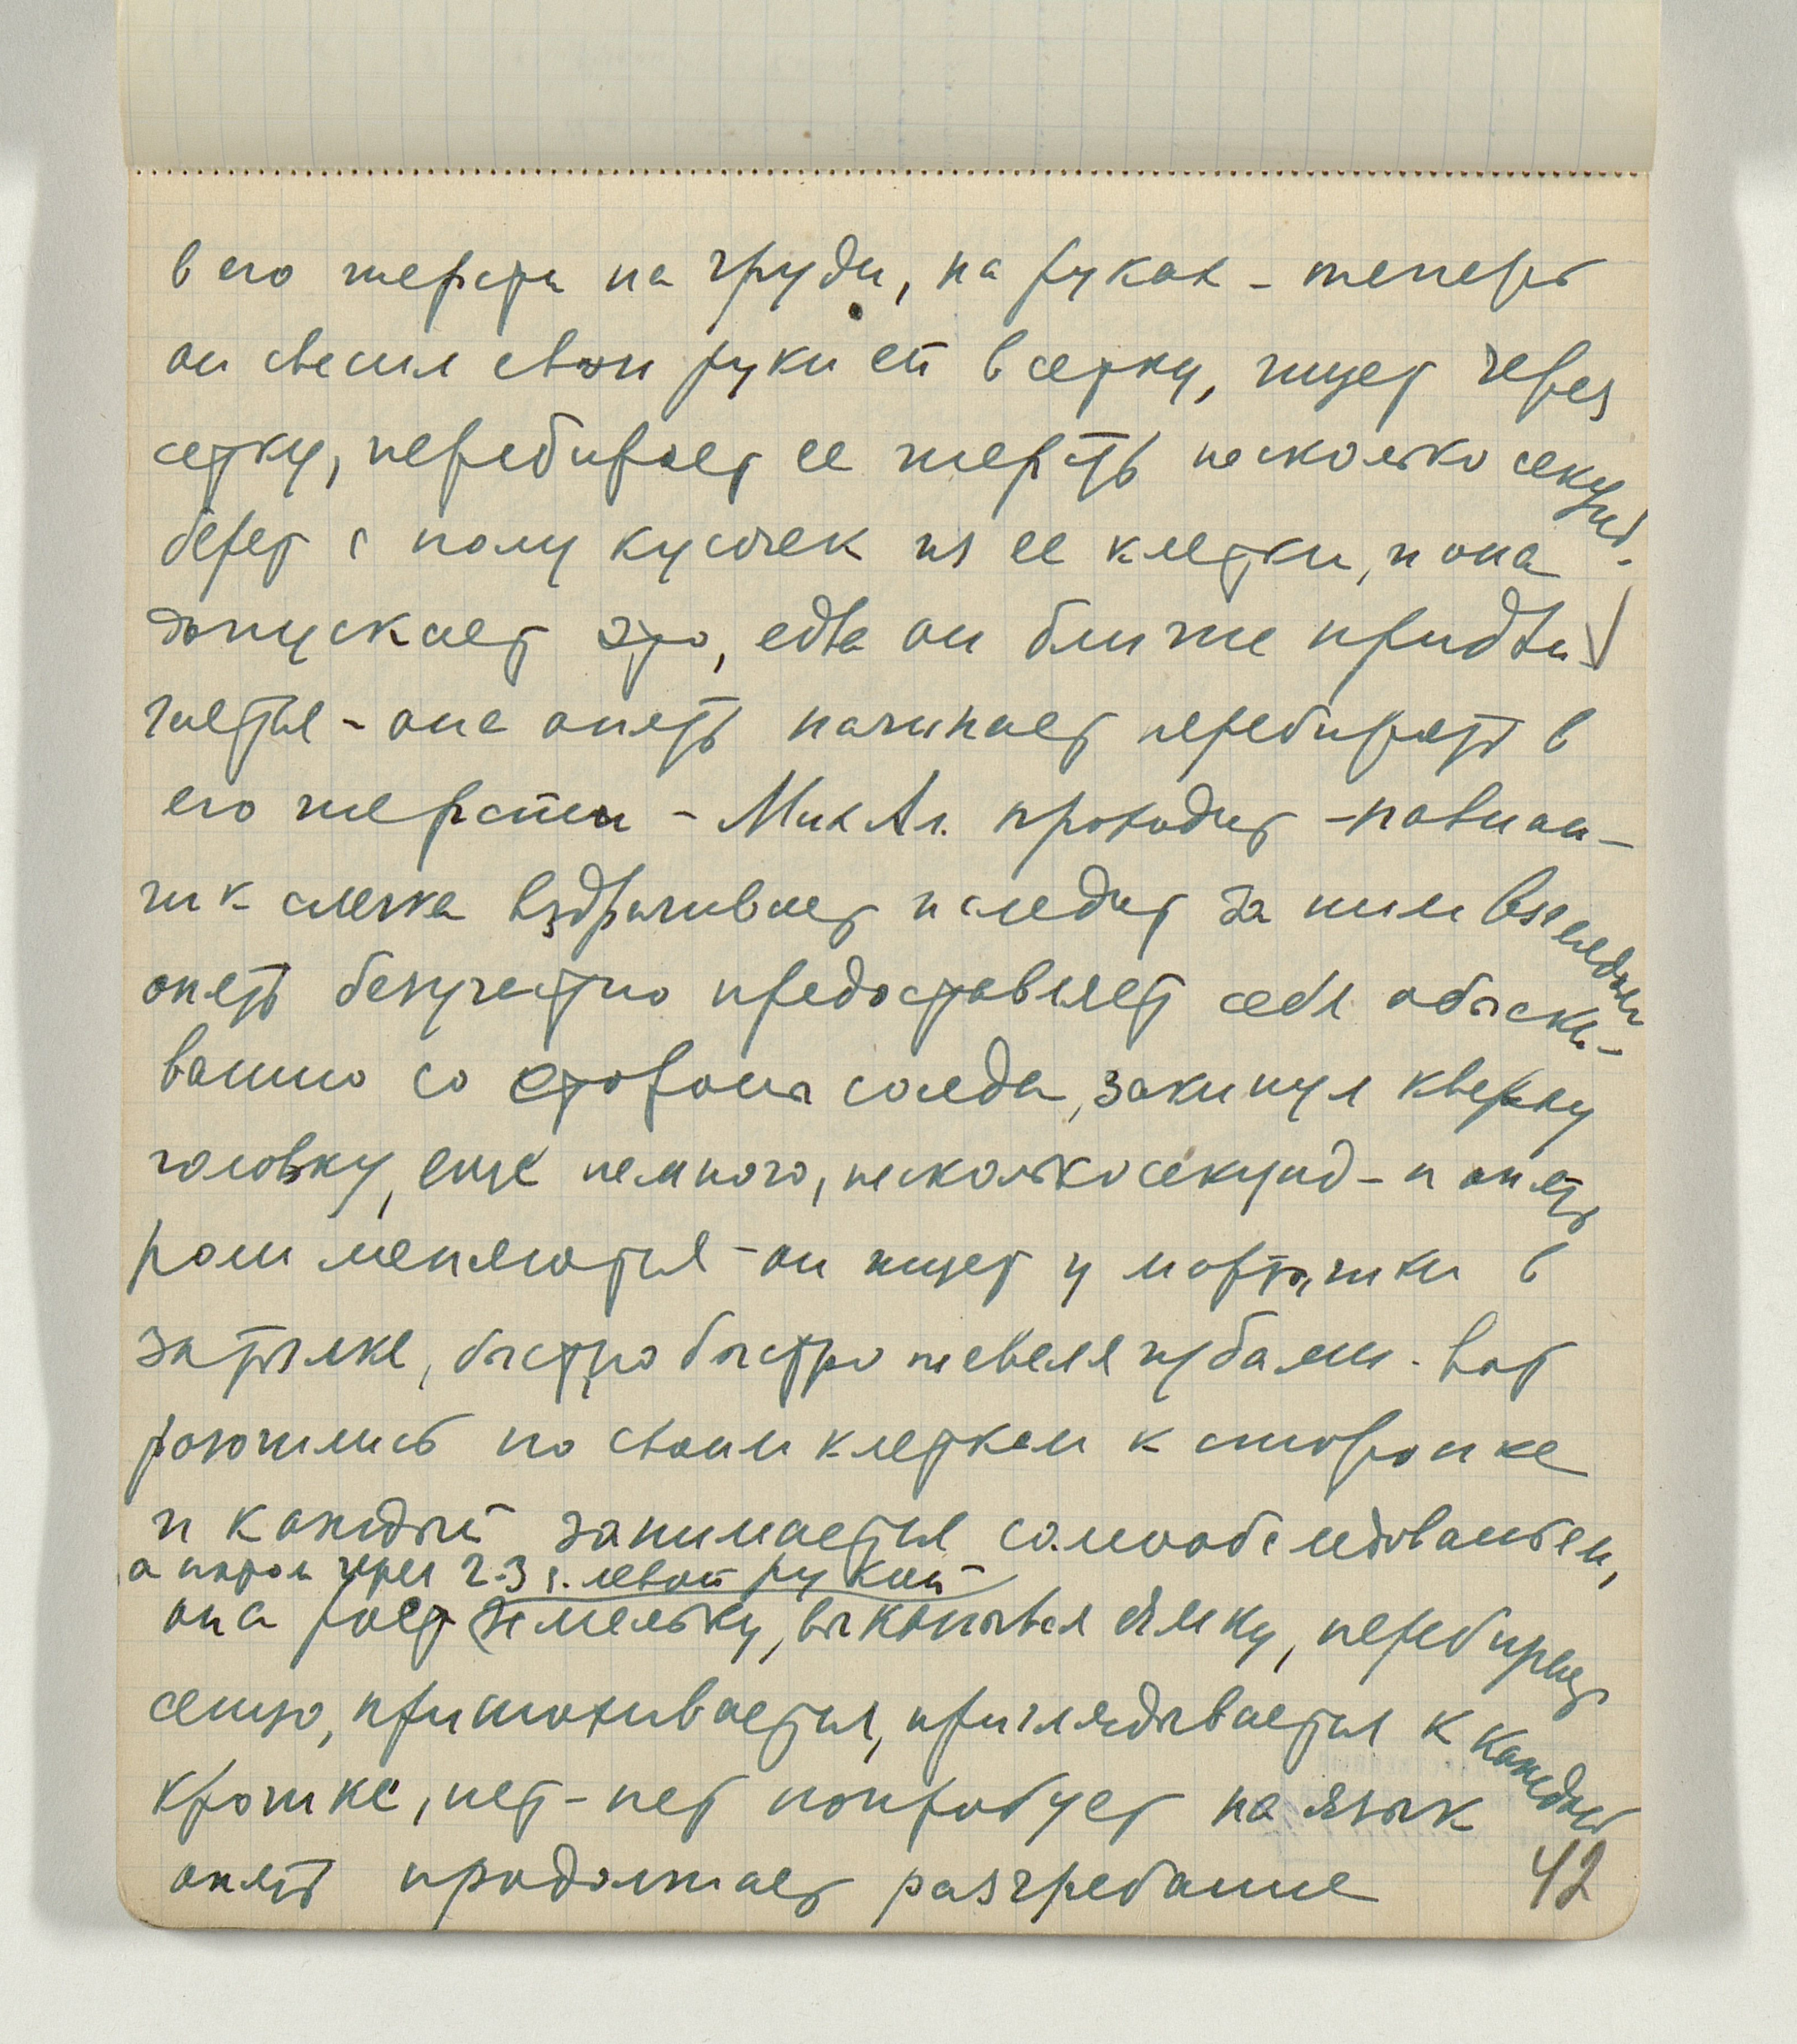 в его шерсти на груди, на руках - теперь
он свесил свои руки ей в сетку, ищет через
сетку, перебирает ее шерсть несколько секунд -
берет с полу кусочек из ее клетки, и она
допускает это, едва он ближе придви-
гается - она опять начинает перебирать в
его шерсти - Мих Ал. проходит - павиан-
чик слегка вздрагивает и следит за ним взглядом
опять безучастно предоставляет себя обыски-
ванию со стороны соседа, закинул кверху
головку, еще немного, несколько секунд - и опять
роли меняются - он ищет у мартышки в
затылке, быстро быстро шевеля губами. Вот
разошлись по своим клеткам к сторонке
и каждый занимается самообследованием,
а потом через 2-3 с. левой рукой
она роет земельку, выкапывая ямку, перебирает
сенцо, принюхивается, приглядывается к каждой
крошке, нет-нет попробует на язык
опять продолжает разгребание
42